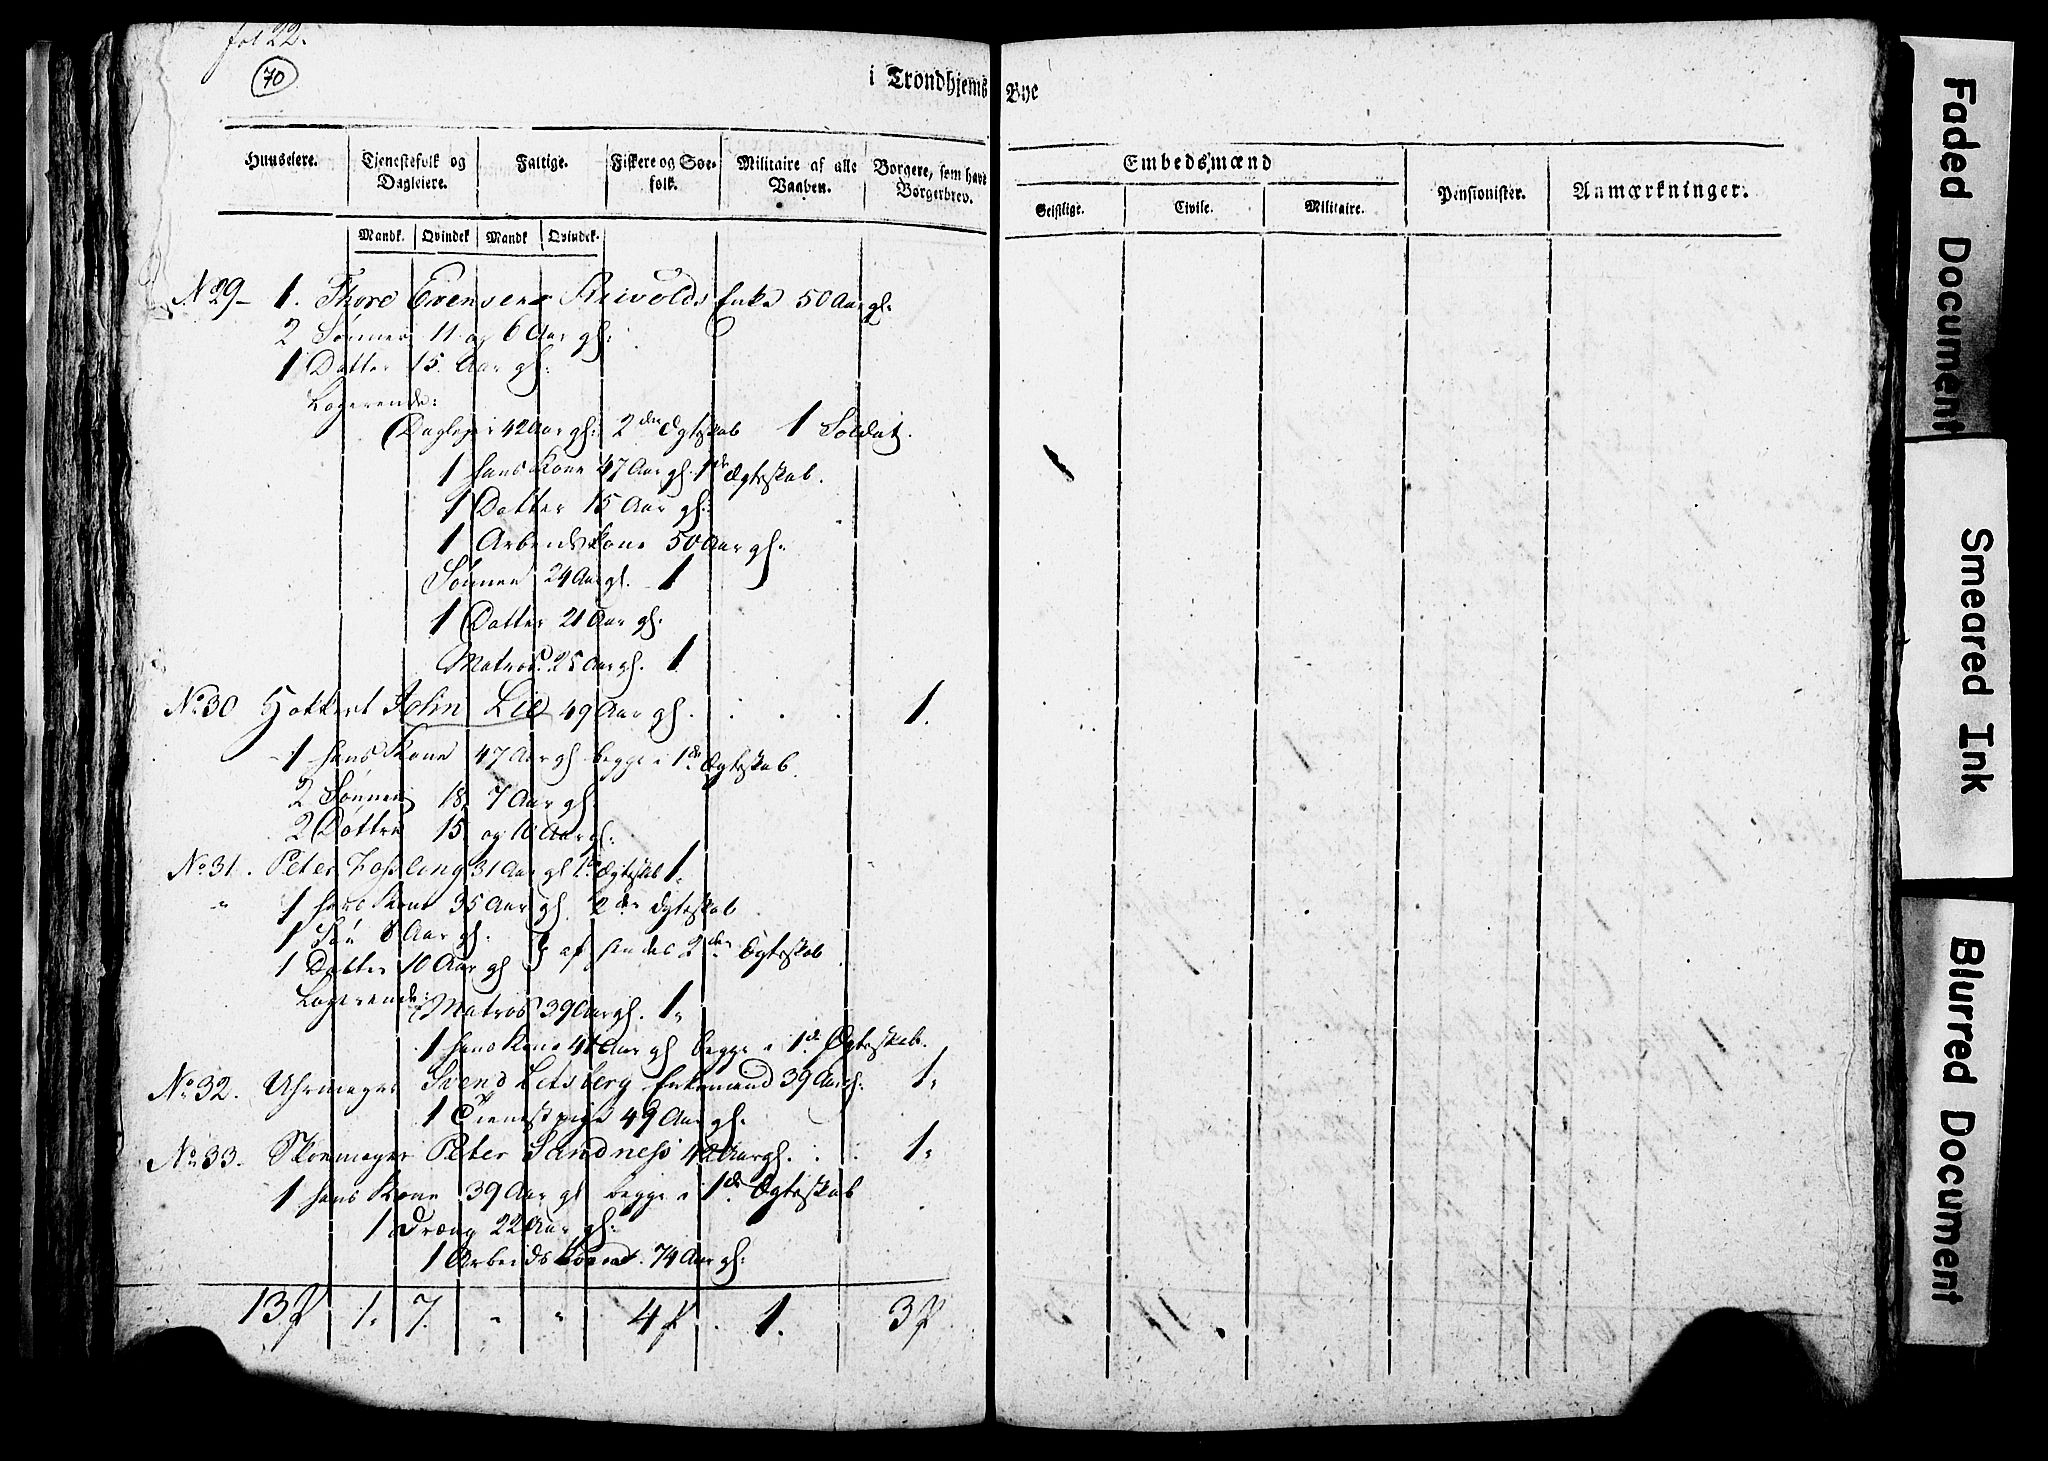 fol 22.
70
i Trondhjems Bye
Huuseiere. Tjenestefolk og Dagleiere. Fattige. Fiskere og Søefolk. Militaire af alle Vaaben. Borgere, som have Borgerbrev. Embedsmænd Pensionister. Anmærkninger.
Geistlige. Civile. Militaire.
Mandk. Qvindek Mandk Qvindek.
No 29 1. Thore Evensens Enke 50 Aar gl:
2 Sønner 11 og 6 Aar gl:
1 Datter 15 Aar gl:
Logerende:
Daglejer 42 Aar gl: 2den Ægteskab 1 Soldat.
1 hans Kone 47 Aar gl. 1de Ægteskab.
1 Datter 15 Aar gl:
1 Arbeidskone 50 Aar gl:
Sønnen 24 Aar gl. 1
1 Datter 21 Aar gl:
Matros 25 Aar gl. 1
No 30 John Lie 49 Aar gl. 1.
1 hans Kone 47 Aar gl begge i 1de Ægteskab.
2 Sønner 18, 7 Aar gl
2 Døttre 15 og 10 Aar gl:
No 31. Peter 31 Aar gl 1de Ægteskab 1
1 hans Kone 35 Aar gl. 2den Ægteskab
1 Søn 8 Aar gl:
1 Datter 10 Aar gl } af hendes 2den Ægteskab
Logerende:
Matros 39 Aar gl. 1
1 hans Kone Aar gl begge i 1de Ægteskab.
No 32. Uhrmager Svend Enkemand 39 Aar gl: 1
1 Tienestpige 49 Aar gl:
No 33. Skoemager Peter Sandness 42 Aar gl. 1
1 hans Kone 39 Aar gl begge i 1de Ægteskab
1 Dræng 22 Aar gl:
1 Arbeids 74 Aar gl:
13 1. 7. " " 4 1. 3
Faded Document
Smeared Ink
Blurred Document